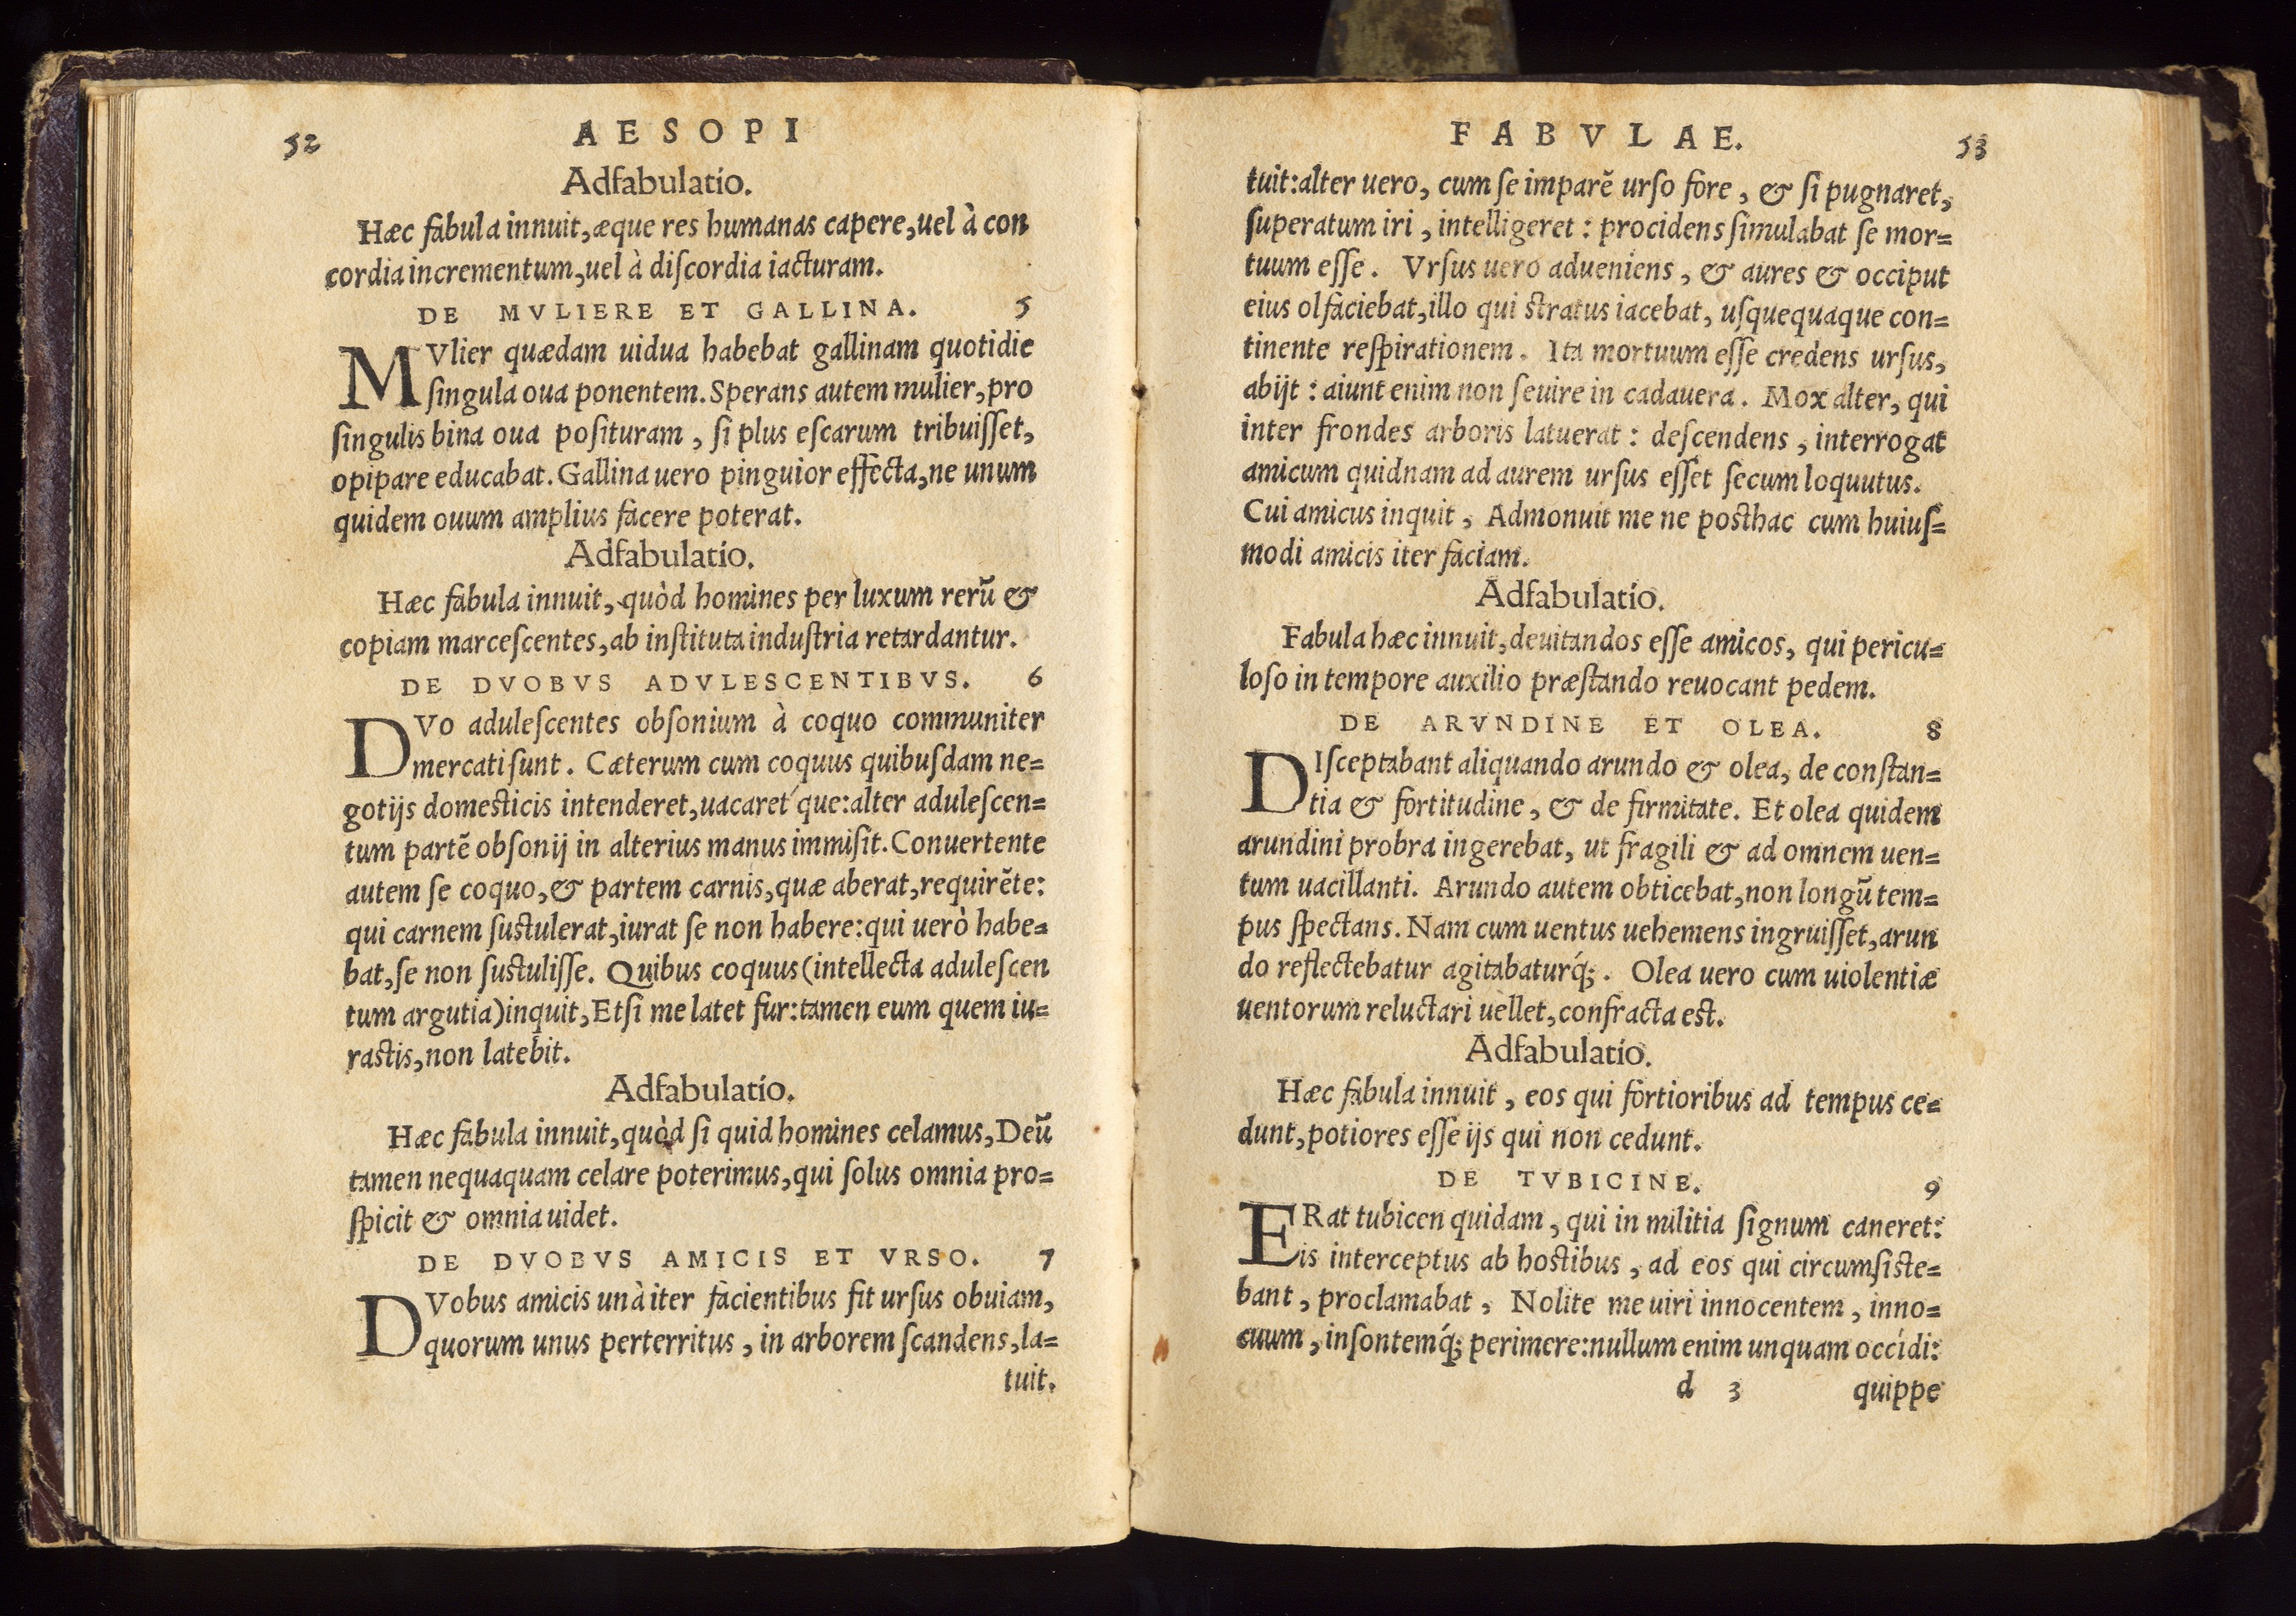 52
AESOPI
Adfabulatio.
Hæc fabula innuit, æque res humanas capere, uel à con
cordia incrementum, uel à diſcordia iacturam.
DE MVLIERE ET GALLINA. 5
MVlier quædam uidua habebat gallinam quotidie
ſingula oua ponentem. Sperans autem mulier, pro
ſingulis bina oua poſituram, ſi plus eſcarum tribuiſſet,
opipare educabat. Gallina uero pinguior effecta, ne unum
quidem ouum amplius facere poterat.
Adfabulatio.
Hæc fabula innuit, quòd homines per luxum rerũ &
copiam marceſcentes, ab inſtituta induſtria retardantur.
DE DVOBVS ADVLESCENTIBVS. 6
DVo aduleſcentes obſonium à coquo communiter
mercati ſunt. Cæterum cum coquus quibuſdam ne=
gotijs domeſticis intenderet, uacaret´que: alter aduleſcen=
tum partẽ obſonij in alterius manus immiſit. Conuertente
autem ſe coquo, & partem carnis, quæ aberat, requirẽte:
qui carnem ſuſtulerat, iurat ſe non habere: qui uerò habe=
bat, ſe non ſuſtuliſſe. Quibus coquus (intellecta aduleſcen
tum argutia) inquit, Etſi me latet fur: tamen eum quem iu=
raſtis, non latebit.
Adfabulatio.
Hæc fabula innuit, quòd ſi quid homines celamus, Deũ
tamen nequaquam celare poterimus, qui ſolus omnia pro=
ſpicit & omnia uidet.
DE DVOBVS AMICIS ET VRSO. 7
DVobus amicis unà iter facientibus fit urſus obuiam,
quorum unus perterritus, in arborem ſcandens, la=
tuit.
FABVLAE. 53
tuit: alter uero, cum ſe imparẽ urſo fore, & ſi pugnaret,
ſuperatum iri, intelligeret: procidens ſimulabat ſe mor=
tuum eſſe. Vrſus uero adueniens, & aures & occiput
eius olfaciebat, illo qui ſtratus iacebat, uſquequaque con=
tinente reſpirationem. Ita mortuum eſſe credens urſus,
abijt: aiunt enim non ſeuire in cadauera. Mox alter, qui
inter frondes arboris latuerat: deſcendens, interrogat
amicum quidnam ad aurem urſus eſſet ſecum loquutus.
Cui amicus inquit, Admonuit me ne poſthac cum huiuſ=
modi amicis iter faciam.
Adfabulatio.
Fabula hæc innuit, deuitandos eſſe amicos, qui pericu=
loſo in tempore auxilio præſtando reuocant pedem.
DE ARVNDINE ET OLEA. 8
DIſceptabant aliquando arundo & olea, de conſtan=
tia & fortitudine, & de firmitate. Et olea quidem
arundini probra ingerebat, ut fragili & ad omnem uen=
tum uacillanti. Arundo autem obticebat, non longũ tem=
pus ſpectans. Nam cum uentus uehemens ingruiſſet, arun
do reflectebatur agitabaturq́;. Olea uero cum uiolentiæ
uentorum reluctari uellet, confracta eſt.
Adfabulatio.
Hæc fabula innuit, eos qui fortioribus ad tempus ce=
dunt, potiores eſſe ijs qui non cedunt.
DE TVBICINE. 9
ERat tubicen quidam, qui in militia ſignum caneret:
is interceptus ab hoſtibus, ad eos qui circumſiſte=
bant, proclamabat, Nolite me uiri innocentem, inno=
cuum, inſontemq́; perimere: nullum enim unquam occídi:
d 3 quippe